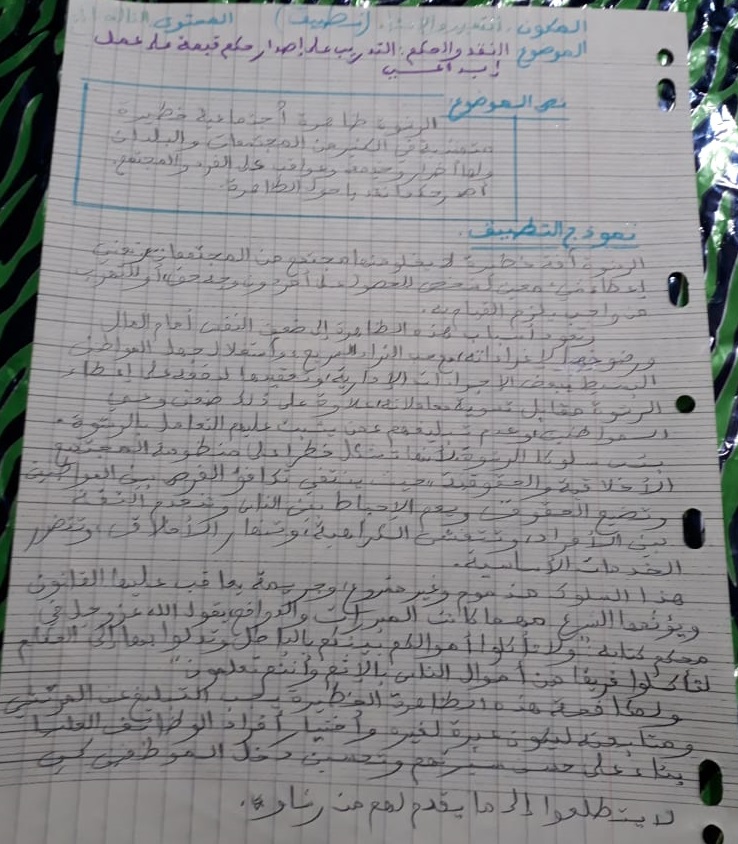 المكون: التعبير والإنشاء (تطبيق) المستوى: الثالثة
الموضوع: النقد والحكم: التدريب على إصدار حكم قيمة على عمل
إبداعي
نص الموضوع:
الرشوة ظاهرة أجتماعية خطيرة
متفشية في الكثير من المجتمعات والبلدان
ولها أضرار وخيمة وعواقب على الفرد والمجتمع.
أصدر حكما نقديا حول الظاهرة.
نموذج التطبيق:
الرشوة آفة خطيرة لا يخلو منها مجتمع من المجتمعات، تعني
إعطاء معين لشخص للحصول على أمر دون وجه حق، أو للتهرب
من واجب يلزم القيام به.
وتعود أسباب هذه الظاهرة إلى ضعف النفس أمام المال
ورضوخها لإغراءاته، وحب الثراء السريع، وأستغلال جهل المواطن
البسيط ببعض الاجراءات الادارية، وتعقيدها لدفعه على إعطاء
الرشوة مقابل تسوية معاملاته، علاوة على ذلك ضعف وعي
المواطنين وعدم تبليغهم عمن يثبت عليهم التعامل بالرشوة.
بئس سلوكا الرشوة لأنها تشكل خطرا على منظومة المجتمع
الأخلاقية والحقوقية، حيث ينتفي تكافؤ الفرص بين المواطنين
وتضيع الحقوق ويعم الإحباط بين الناس وتنعدم الثقة
بين الأفراد، وتتفشى الكراهية، وتنهار الأخلاق، وتتضرر
الخدمات الأساسية.
هذا السلوك مذموم وغير مشروع، وجريمة يعاقب عليها القانون
ويؤثمها الشرع مهما كانت المبررات والدوافع، يقول الله عز وجل في
محكم كتابه "ولا تأكلوا أموالكم بينكم بالباطل وتدلوا بها إلى الحكام
لتأكلوا فريقا من أموال الناس بالإثم وأنتم تعلمون"
ولمكافحة هذه الظاهرة الخطيرة يجب التبليغ عن المرتشي
ومتابعته ليكون عبرة لغيره وأختيار أفراد الوظائف العليا
بناء على حسن سيرتهم وتحسين دخل الموظفين كي
لا يتطلعوا إلى ما يقدم لهم من رشاو.